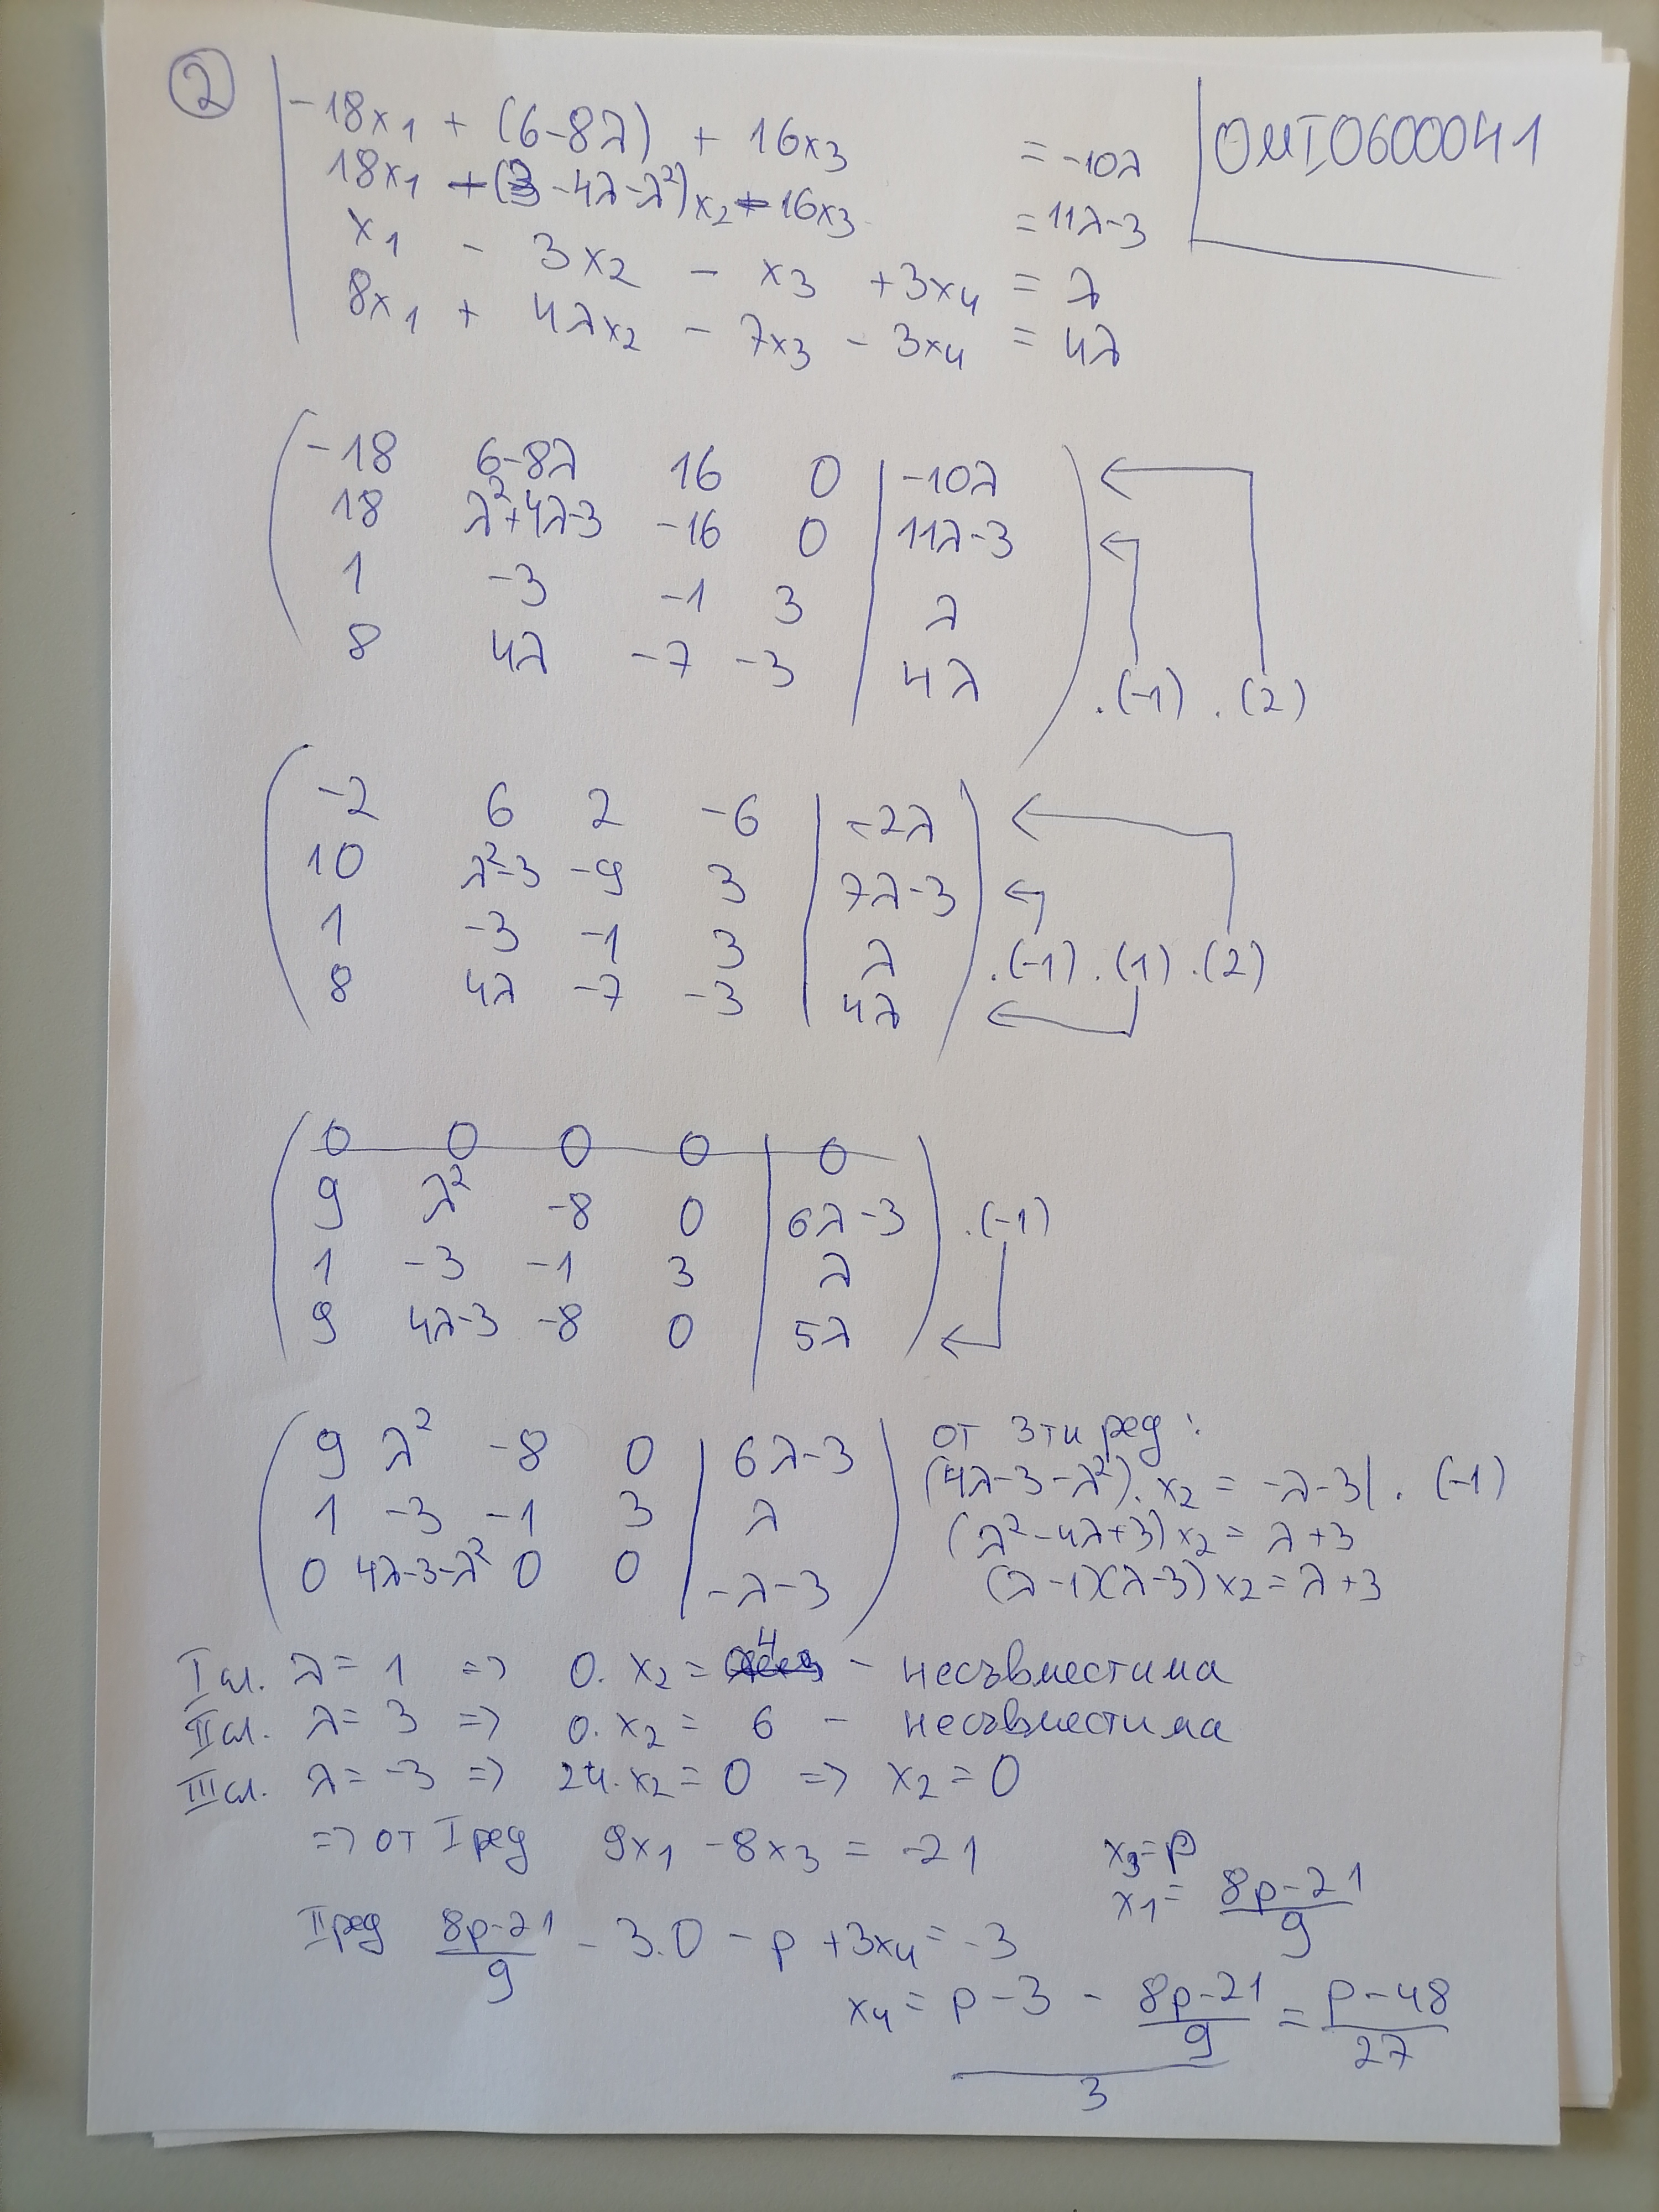 ②
-18x₁ + (6-8λ) + 16x₃ = -10λ
18x₁ -(3-4λ-λ²)x₂ - 16x₃ = 11λ-3
x₁ - 3x₂ - x₃ + 3x₄ = λ
8x₁ + 4λx₂ - 7x₃ - 3x₄ = 4λ
0MI0600041
-18 6-8λ 16 0 | -10λ
18 λ²+4λ-3 -16 0 | 11λ-3
1 -3 -1 3 | λ
8 4λ -7 -3 | 4λ .(-1) .(2)
-2 6 2 -6 | -2λ
10 λ²-3 -9 3 | 7λ-3
1 -3 -1 3 | λ .(-1) .(1) .(2)
8 4λ -7 -3 | 4λ
0 0 0 0 | 0
9 λ² -8 0 | 6λ-3 .(-1)
1 -3 -1 3 | λ
9 4λ-3 -8 0 | 5λ
9 λ² -8 0 | 6λ-3
1 -3 -1 3 | λ
0 4λ-3-λ² 0 0 | -λ-3
от 3ти ред:
(4λ-3-λ²).x₂ = -λ-3 |.(-1)
(λ²-4λ+3)x₂ = λ+3
(λ-1)(λ-3)x₂ = λ+3
I сл. λ = 1 => 0.x₂ = 4 - несъвместима
II сл. λ = 3 => 0.x₂ = 6 - несъвместима
III сл. λ = -3 => 24.x₂ = 0 => x₂ = 0
=> от I ред 9x₁ - 8x₃ = -21
x₃ = p
x₁ = (8p-21)/9
II ред (8p-21)/9 - 3.0 - p + 3x₄ = -3
x₄ = (p - 3 - (8p-21)/9)/3 = (p-48)/27